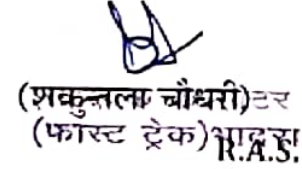 (शकुन्तला चौधरी)टर
(फास्ट ट्रेक)
R.A.S.